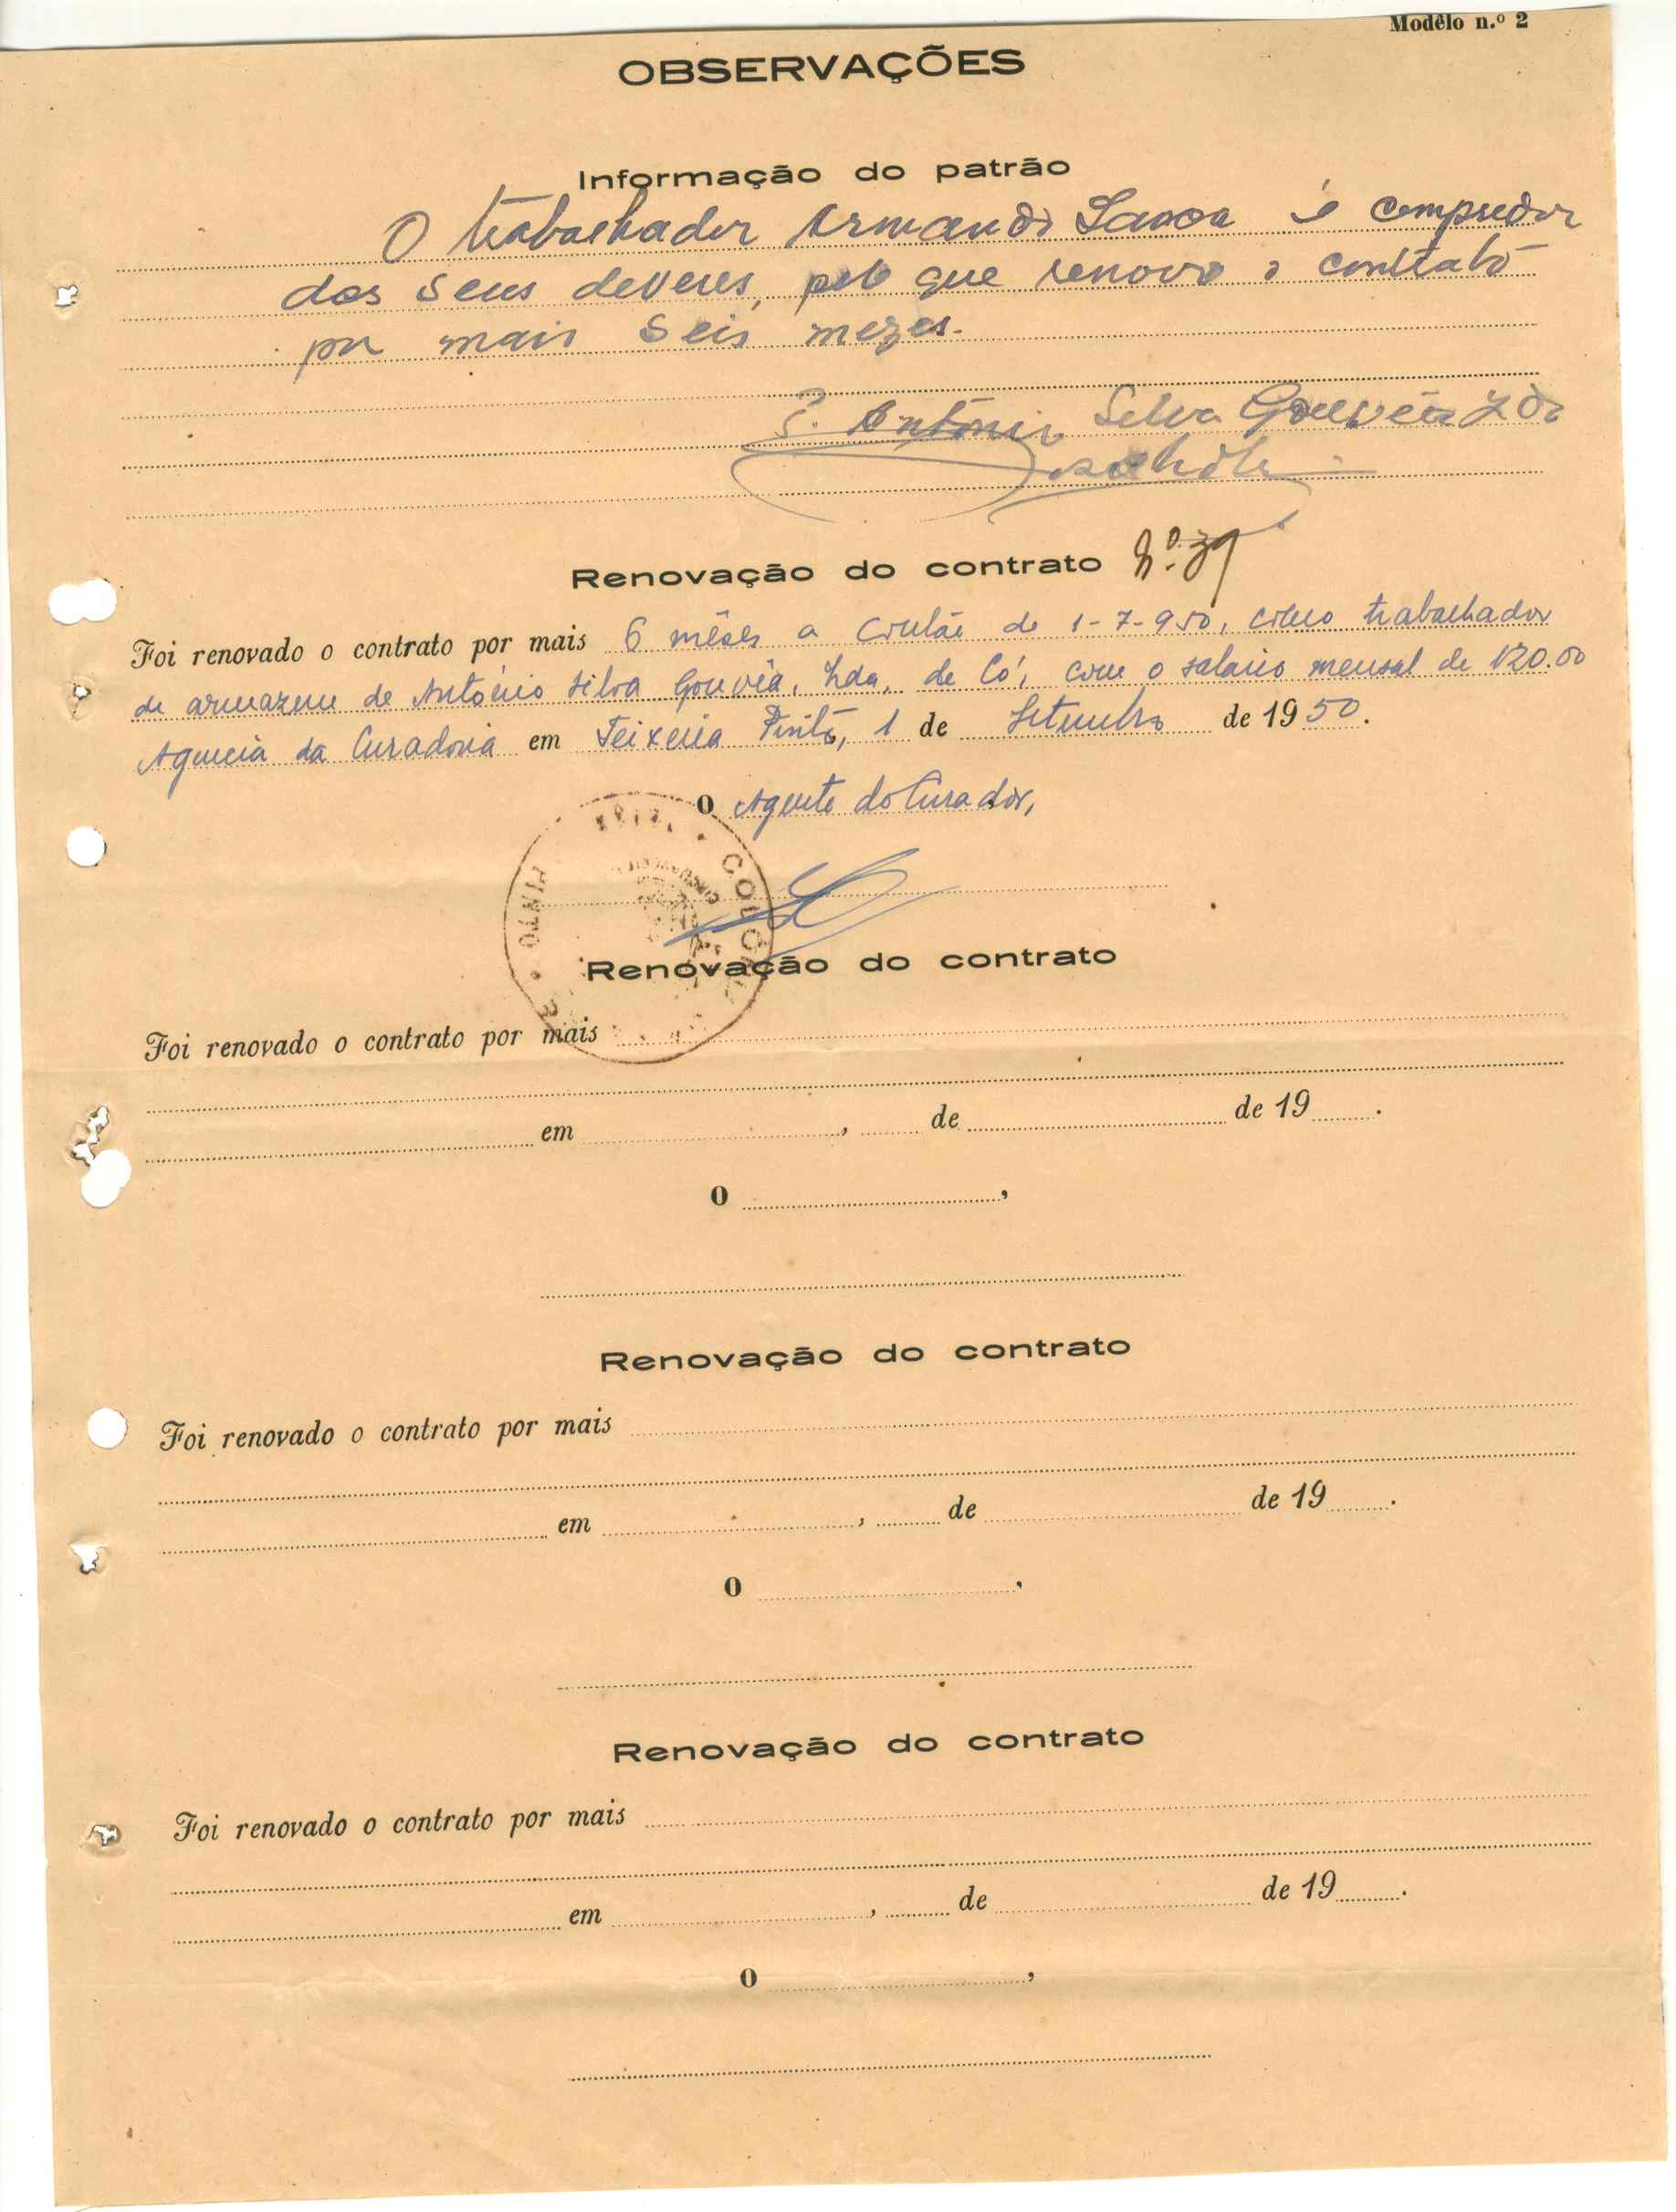 Modêlo n.º 2
OBSERVAÇÕES
Informação do patrão
O trabalhador Armando Sanca é compredor
dos seus deveres, pelo que renovo o contrato
por mais seis mezes.
P. António Silva Gouvêa Lda
Renovação do contrato Nº. 39
Foi renovado o contrato por mais 6 mêses a contar de 1-7-950, como trabalhador
de armazem de António Silva Gouvêa, Lda, de Có, com o salario mensal de 120.00
Agencia da Curadoria em Teixeira Pinto, 1 de Setembro de 1950.
O Agente do Curador,
COLÓNIA
PINTO
Renovação do contrato
Foi renovado o contrato por mais
em , de de 19 .
O ,
Renovação do contrato
Foi renovado o contrato por mais
em , de de 19 .
O ,
Renovação do contrato
Foi renovado o contrato por mais
em , de de 19 .
O ,